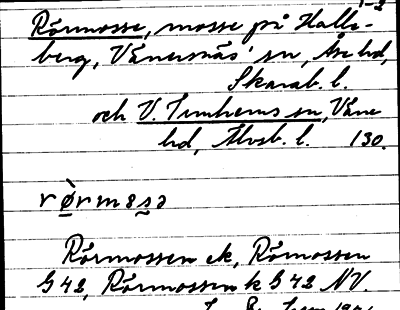 1-2
Rörmosse, mosse på Halle-
berg, Vänersnäs' sn, Åse hd,
Skarab. l.
och V. Tunhems sn, Väne
hd, Älvsb. l. 130.
rø̀rmosə
Rörmossen ek, Rörmossen
G42, Rörmossen k G42 NV.